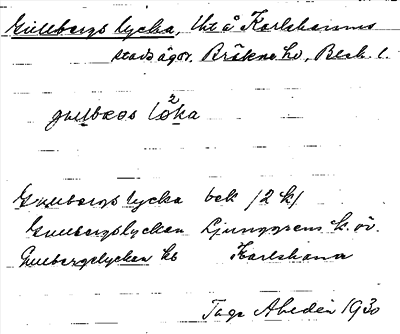 Gullbergs lycka, Uht å Karlshamns
stads ägor. Bräkne hd, Blek. l.
gulbæos løka
2
Gullbergs lycka bek /2 k/
Gullbergslyckan Ljunggrens k. öv.
Gullbergslyckan kb Karlshamn
Tage Ahldén 1930